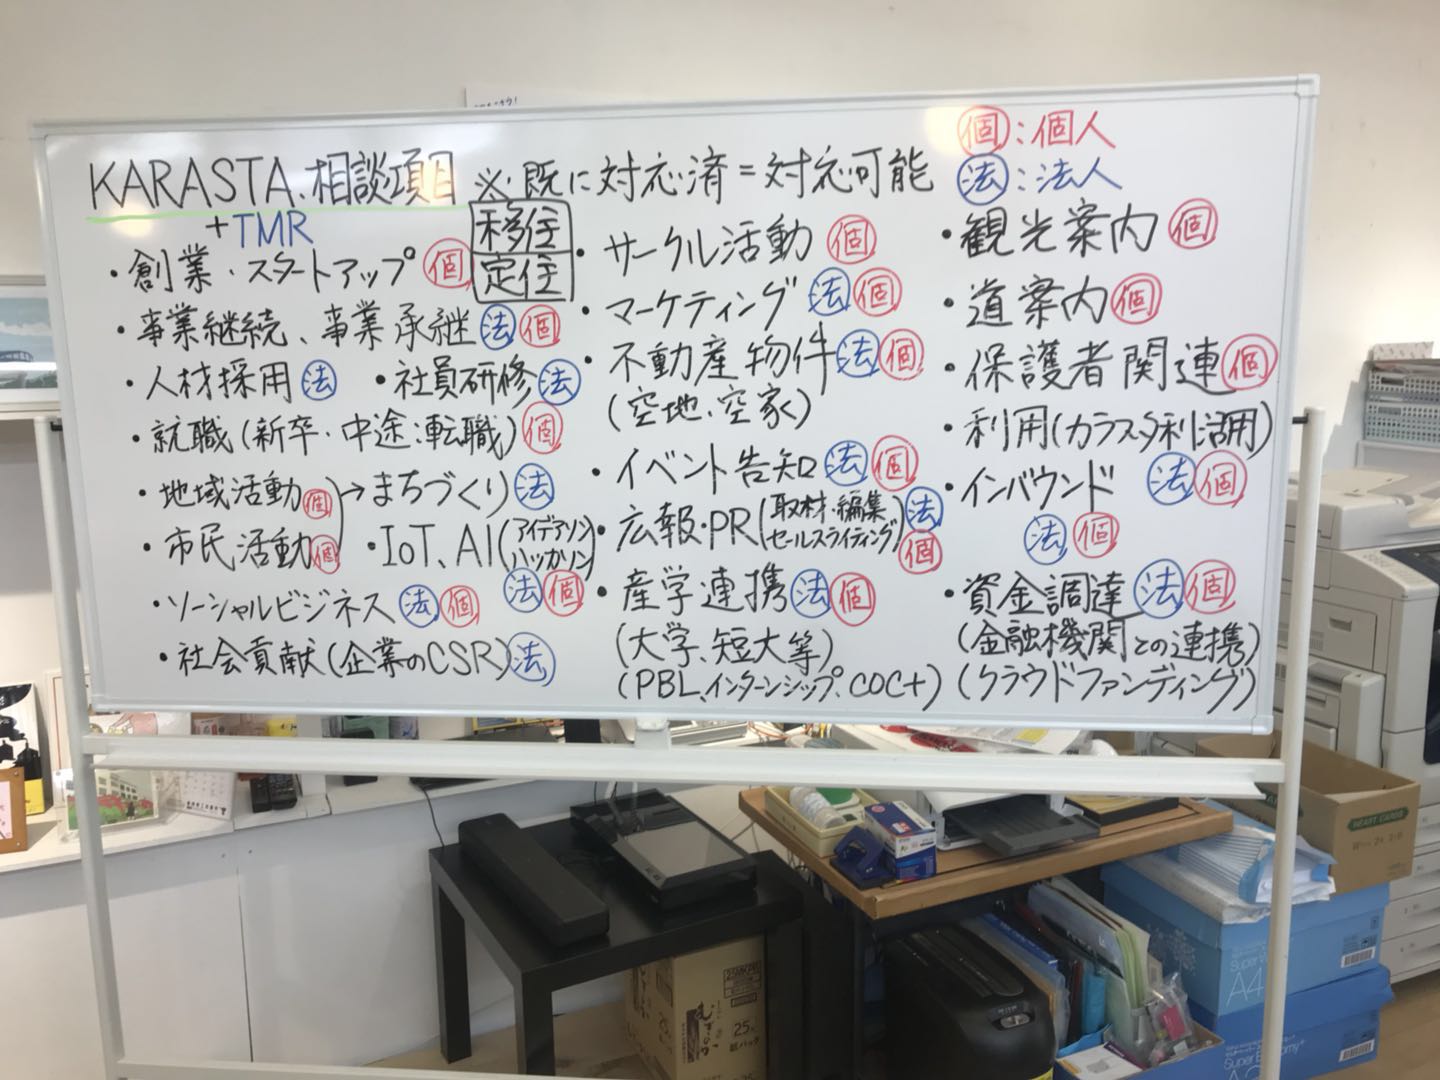 KARASTA.相談項目 ※既に対応済=対応可能
+TMR
個:個人
法:法人
移住
定住
・創業・スタートアップ 個
・事業継続、事業承継 法 個
・人材採用 法 ・社員研修 法
・就職(新卒・中途:転職) 個
・地域活動 個 →まちづくり 法
・市民活動 個
・IoT、AI(アイデアソン ハッカソン)
法 個
・ソーシャルビジネス 法 個
・社会貢献(企業のCSR) 法
・サークル活動 個
・マーケティング 法 個
・不動産物件 法 個
(空地、空家)
・イベント告知 法 個
・広報・PR(取材・編集 セールスライティング) 法 個
・産学連携 法 個
(大学、短大等)
(PBL、インターンシップ、COC+)
・観光案内 個
・道案内 個
・保護者関連 個
・利用(カラスタ利活用)
法 個
・インバウンド
法 個
・資金調達 法 個
(金融機関との連携)
(クラウドファンディング)
むぎのか
25%
紙パック
HEART CARDS
A4
Super Economy+